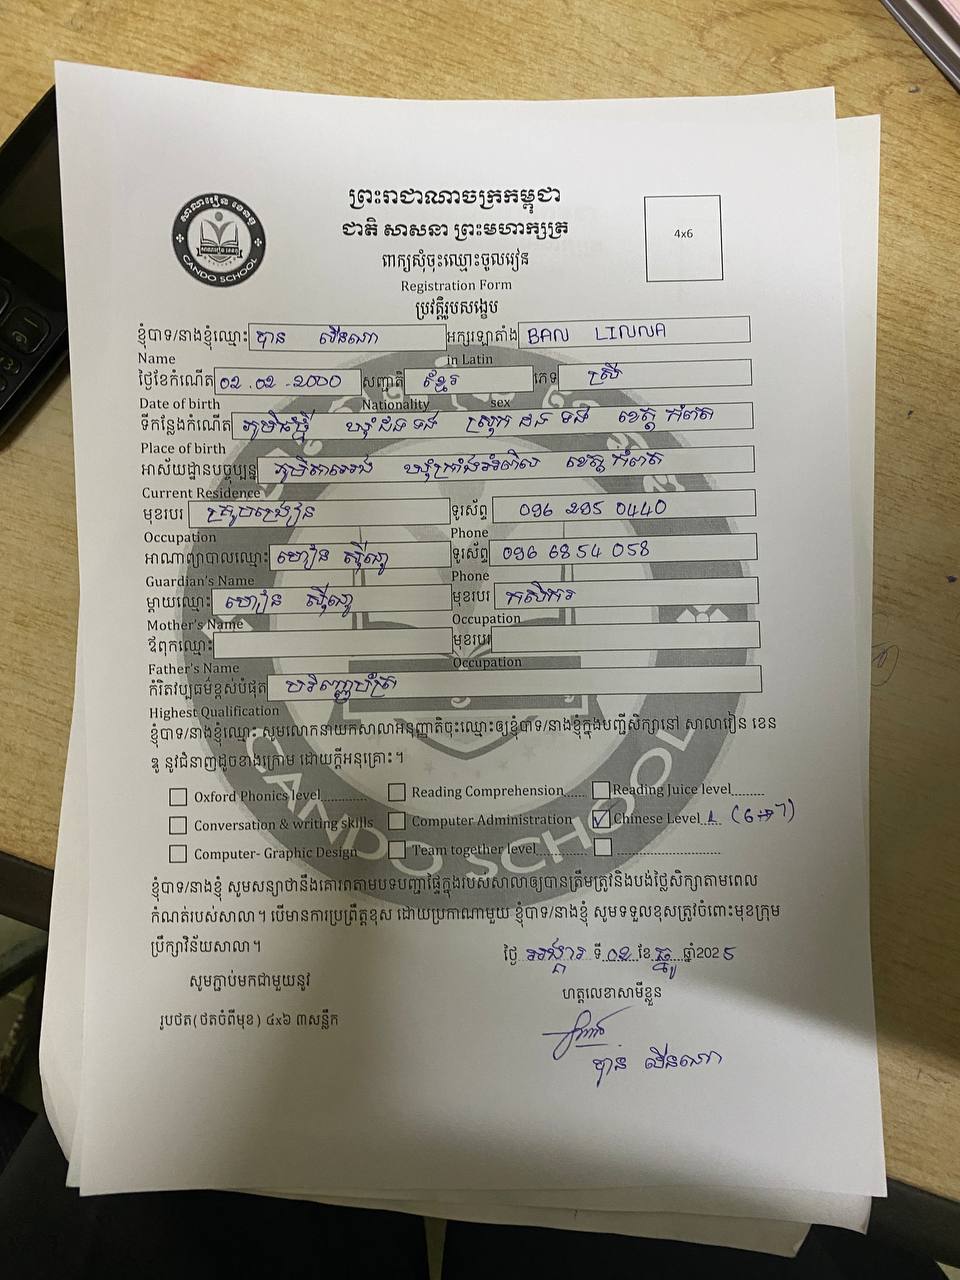 ព្រះរាជាណាចក្រកម្ពុជា
ជាតិ សាសនា ព្រះមហាក្សត្រ
សាលារៀន ខេនឌូ
CANDO SCHOOL
4x6
ពាក្យសុំចុះឈ្មោះចូលរៀន
Registration Form
ប្រវត្តិរូបសង្ខេប
ខ្ញុំបាទ/នាងខ្ញុំឈ្មោះ បាន លីនណា អក្សរឡាតាំង BAN LINNA
Name in Latin
ថ្ងៃខែកំណើត 02.02.2000 សញ្ជាតិ ខ្មែរ ភេទ ស្រី
Date of birth Nationality sex
ទីកន្លែងកំណើត ភូមិធ្មី ឃុំដងទង់ ស្រុក ដងទង់ ខេត្ត កំពត
Place of birth
អាស័យដ្ឋានបច្ចុប្បន្ន ភូមិតាអោង ឃុំក្រាំងអំពិល ខេត្ត កំពត
Current Residence
មុខរបរ គ្រូបង្រៀន ទូរស័ព្ទ 096 295 0440
Occupation Phone
អាណាព្យាបាលឈ្មោះ ហឿន ស៊ីញ៉ូ ទូរស័ព្ទ 096 6854 058
Guardian's Name Phone
ម្តាយឈ្មោះ ហឿន ស៊ីញ៉ូ មុខរបរ កសិករ
Mother's Name Occupation
ឪពុកឈ្មោះ មុខរបរ
Father's Name Occupation
កំរិតវប្បធម៌ខ្ពស់បំផុត បរិញ្ញាបត្រ
Highest Qualification
ខ្ញុំបាទ/នាងខ្ញុំឈ្មោះ សូមលោកនាយកសាលាអនុញ្ញាតិចុះឈ្មោះឲ្យខ្ញុំបាទ/នាងខ្ញុំក្នុងបញ្ជីសិក្សានៅ សាលារៀន ខេន
ឌូ នូវជំនាញដូចខាងក្រោម ដោយក្តីអនុគ្រោះ។
Oxford Phonics level............ Reading Comprehension...... Reading Juice level.........
Conversation & writing skills Computer Administration Chinese Level...1 (6→7)
Computer- Graphic Design Team together level............
ខ្ញុំបាទ/នាងខ្ញុំ សូមសន្យាថានឹងគោរពតាមបទបញ្ជាផ្ទៃក្នុងរបស់សាលាឲ្យបានត្រឹមត្រូវនិងបង់ថ្លៃសិក្សាតាមពេល
កំណត់របស់សាលា។ បើមានការប្រព្រឹត្តខុស ដោយប្រការណាមួយ ខ្ញុំបាទ/នាងខ្ញុំ សូមទទួលខុសត្រូវចំពោះមុខក្រុម
ប្រឹក្សាវិន័យសាលា។
ថ្ងៃ អង្គារ ទី 02 ខែ ធ្នូ ឆ្នាំ2025
សូមភ្ជាប់មកជាមួយនូវ
ហត្ថលេខាសាមីខ្លួន
រូបថត(ថតចំពីមុខ) ៤x៦ ៣សន្លឹក
បាន លីនណា